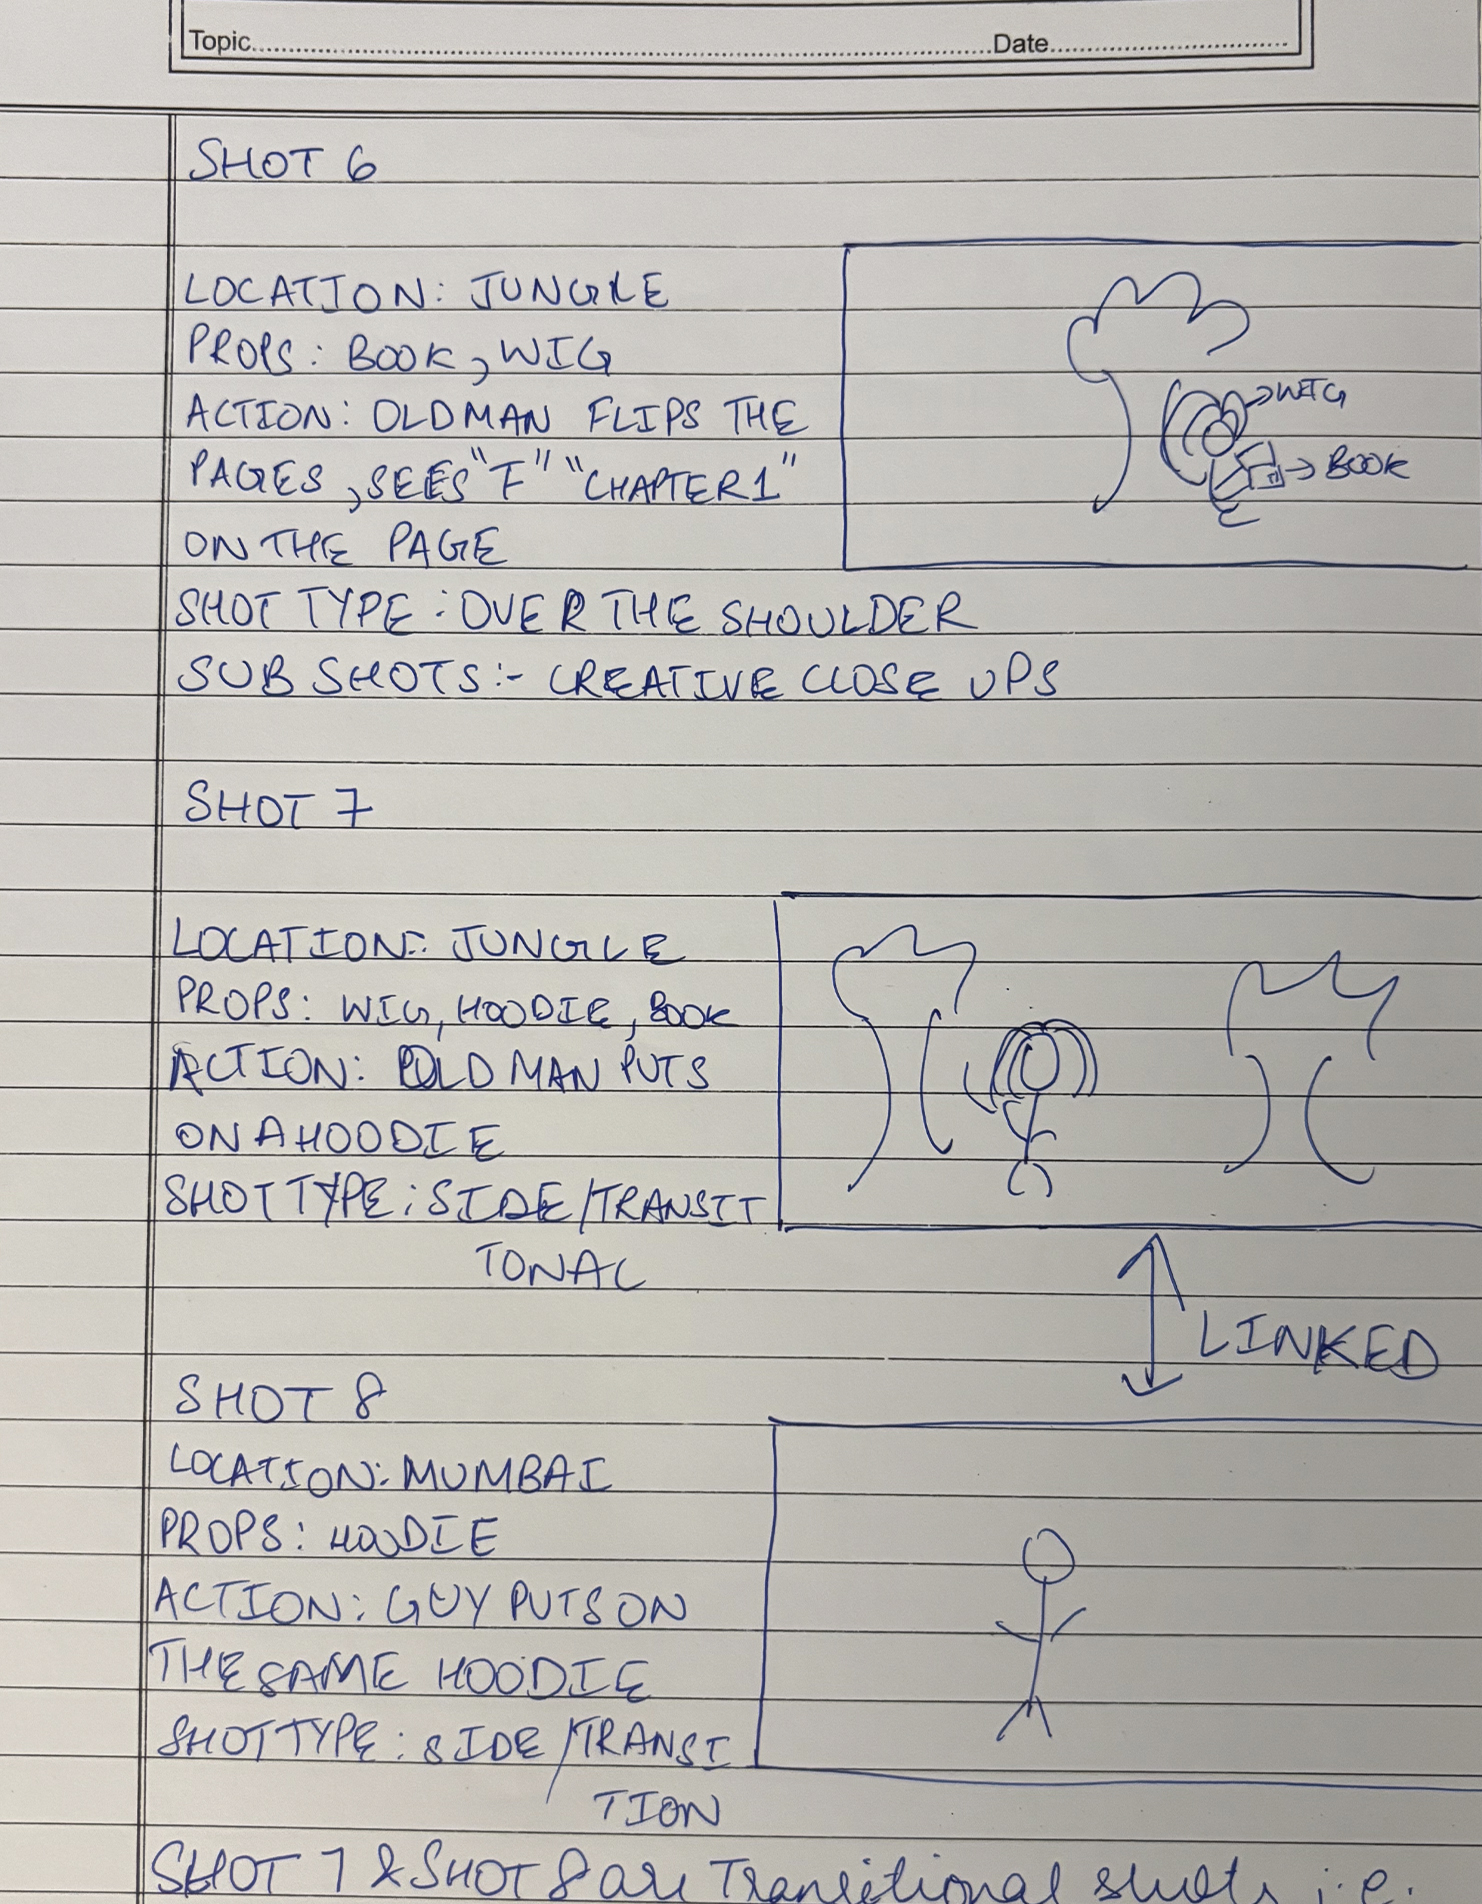 Topic Date
SHOT 6
LOCATION: JUNGLE
PROPS: BOOK, WIG
ACTION: OLD MAN FLIPS THE
PAGES, SEES "F" "CHAPTER 1"
ON THE PAGE
WIG
BOOK
SHOT TYPE: OVER THE SHOULDER
SUB SHOTS:- CREATIVE CLOSE UPS
SHOT 7
LOCATION: JUNGLE
PROPS: WIG, HOODIE, BOOK
ACTION: OLD MAN PUTS
ON A HOODIE
SHOT TYPE: SIDE/TRANSIT
TONAL
LINKED
SHOT 8
LOCATION: MUMBAI
PROPS: HOODIE
ACTION: GUY PUTS ON
THE SAME HOODIE
SHOT TYPE: SIDE/TRANSI
TION
SHOT 7 & SHOT 8 are Transitional shots i.e.